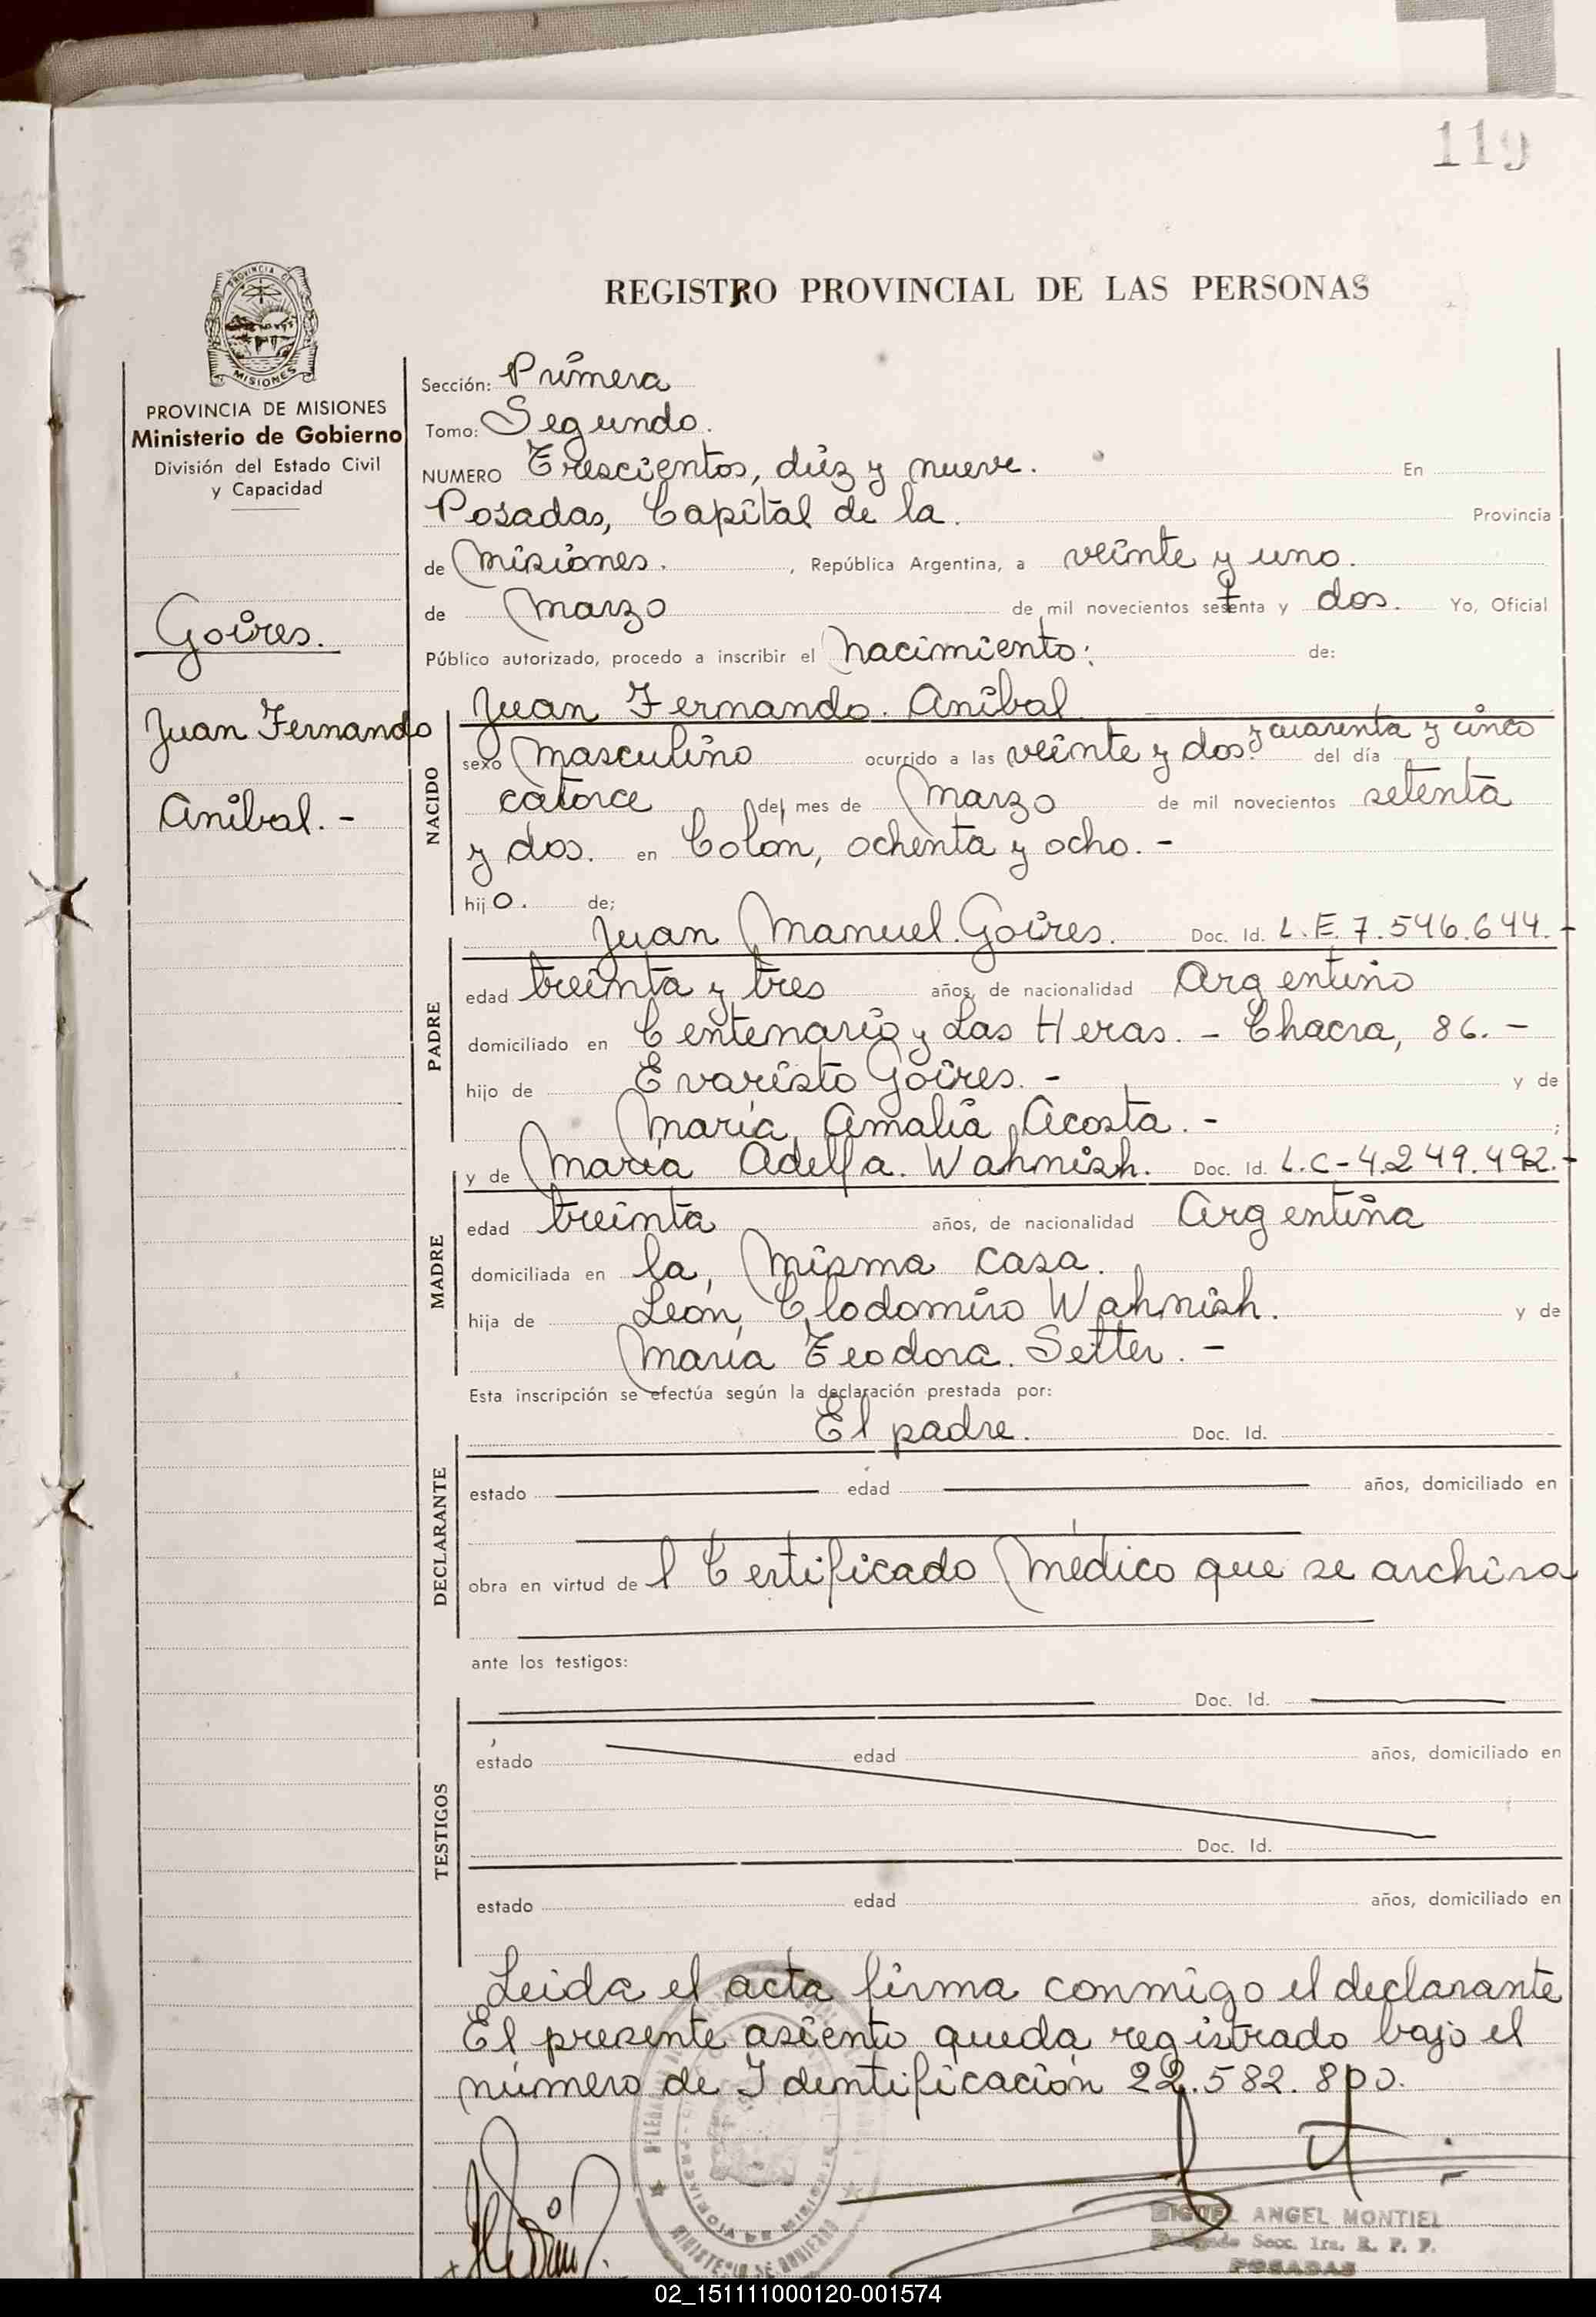 119
REGISTRO PROVINCIAL DE LAS PERSONAS
PROVINCIA DE MISIONES
PROVINCIA DE MISIONES
Ministerio de Gobierno
División del Estado Civil
y Capacidad
Goires.
Juan Fernando
Aníbal. -
Sección: Primera
Tomo: Segundo.
NUMERO Trescientos, diéz y nueve. En
Posadas, Capital de la. Provincia
de Misiones. , República Argentina, a veinte y uno.
de Marzo de mil novecientos setenta y dos. Yo, Oficial
Público autorizado, procedo a inscribir el Nacimiento: de:
NACIDO
Juan Fernando. Aníbal
sexo Masculino ocurrido a las veinte y dos. y cuarenta y cinco del día
catorce del mes de Marzo de mil novecientos setenta
y dos. en Colón, ochenta y ocho. -
hijo. de;
PADRE
Juan Manuel. Goires. Doc. Id. L.E. 7.546.644. -
edad treinta y tres años, de nacionalidad Argentino
domiciliado en Centenario y Las Heras. - Chacra, 86. -
hijo de Evaristo Goires. - y de
María, Amalia Acosta. - ;
MADRE
y de María Adelfa. Wahnish. Doc. Id. L.C-4.249.492. -
edad treinta años, de nacionalidad Argentina
domiciliada en la, misma casa.
hija de León, Clodomiro Wahnish. y de
María Teodora. Setter. -
Esta inscripción se efectúa según la declaración prestada por:
DECLARANTE
El padre. Doc. Id.
estado edad años, domiciliado en
obra en virtud de l Certificado Médico que se archiva
ante los testigos:
TESTIGOS
Doc. Id.
estado edad años, domiciliado en
Doc. Id.
estado edad años, domiciliado en
Leida el acta firma conmigo el declarante
El presente asiento queda registrado bajo el
número de Identificación 22.582.800.
MINISTERIO DE GOBIERNO
MIGUEL ANGEL MONTIEL
Delegado Secc. 1ra. R. P. P.
POSADAS
02_151111000120-001574